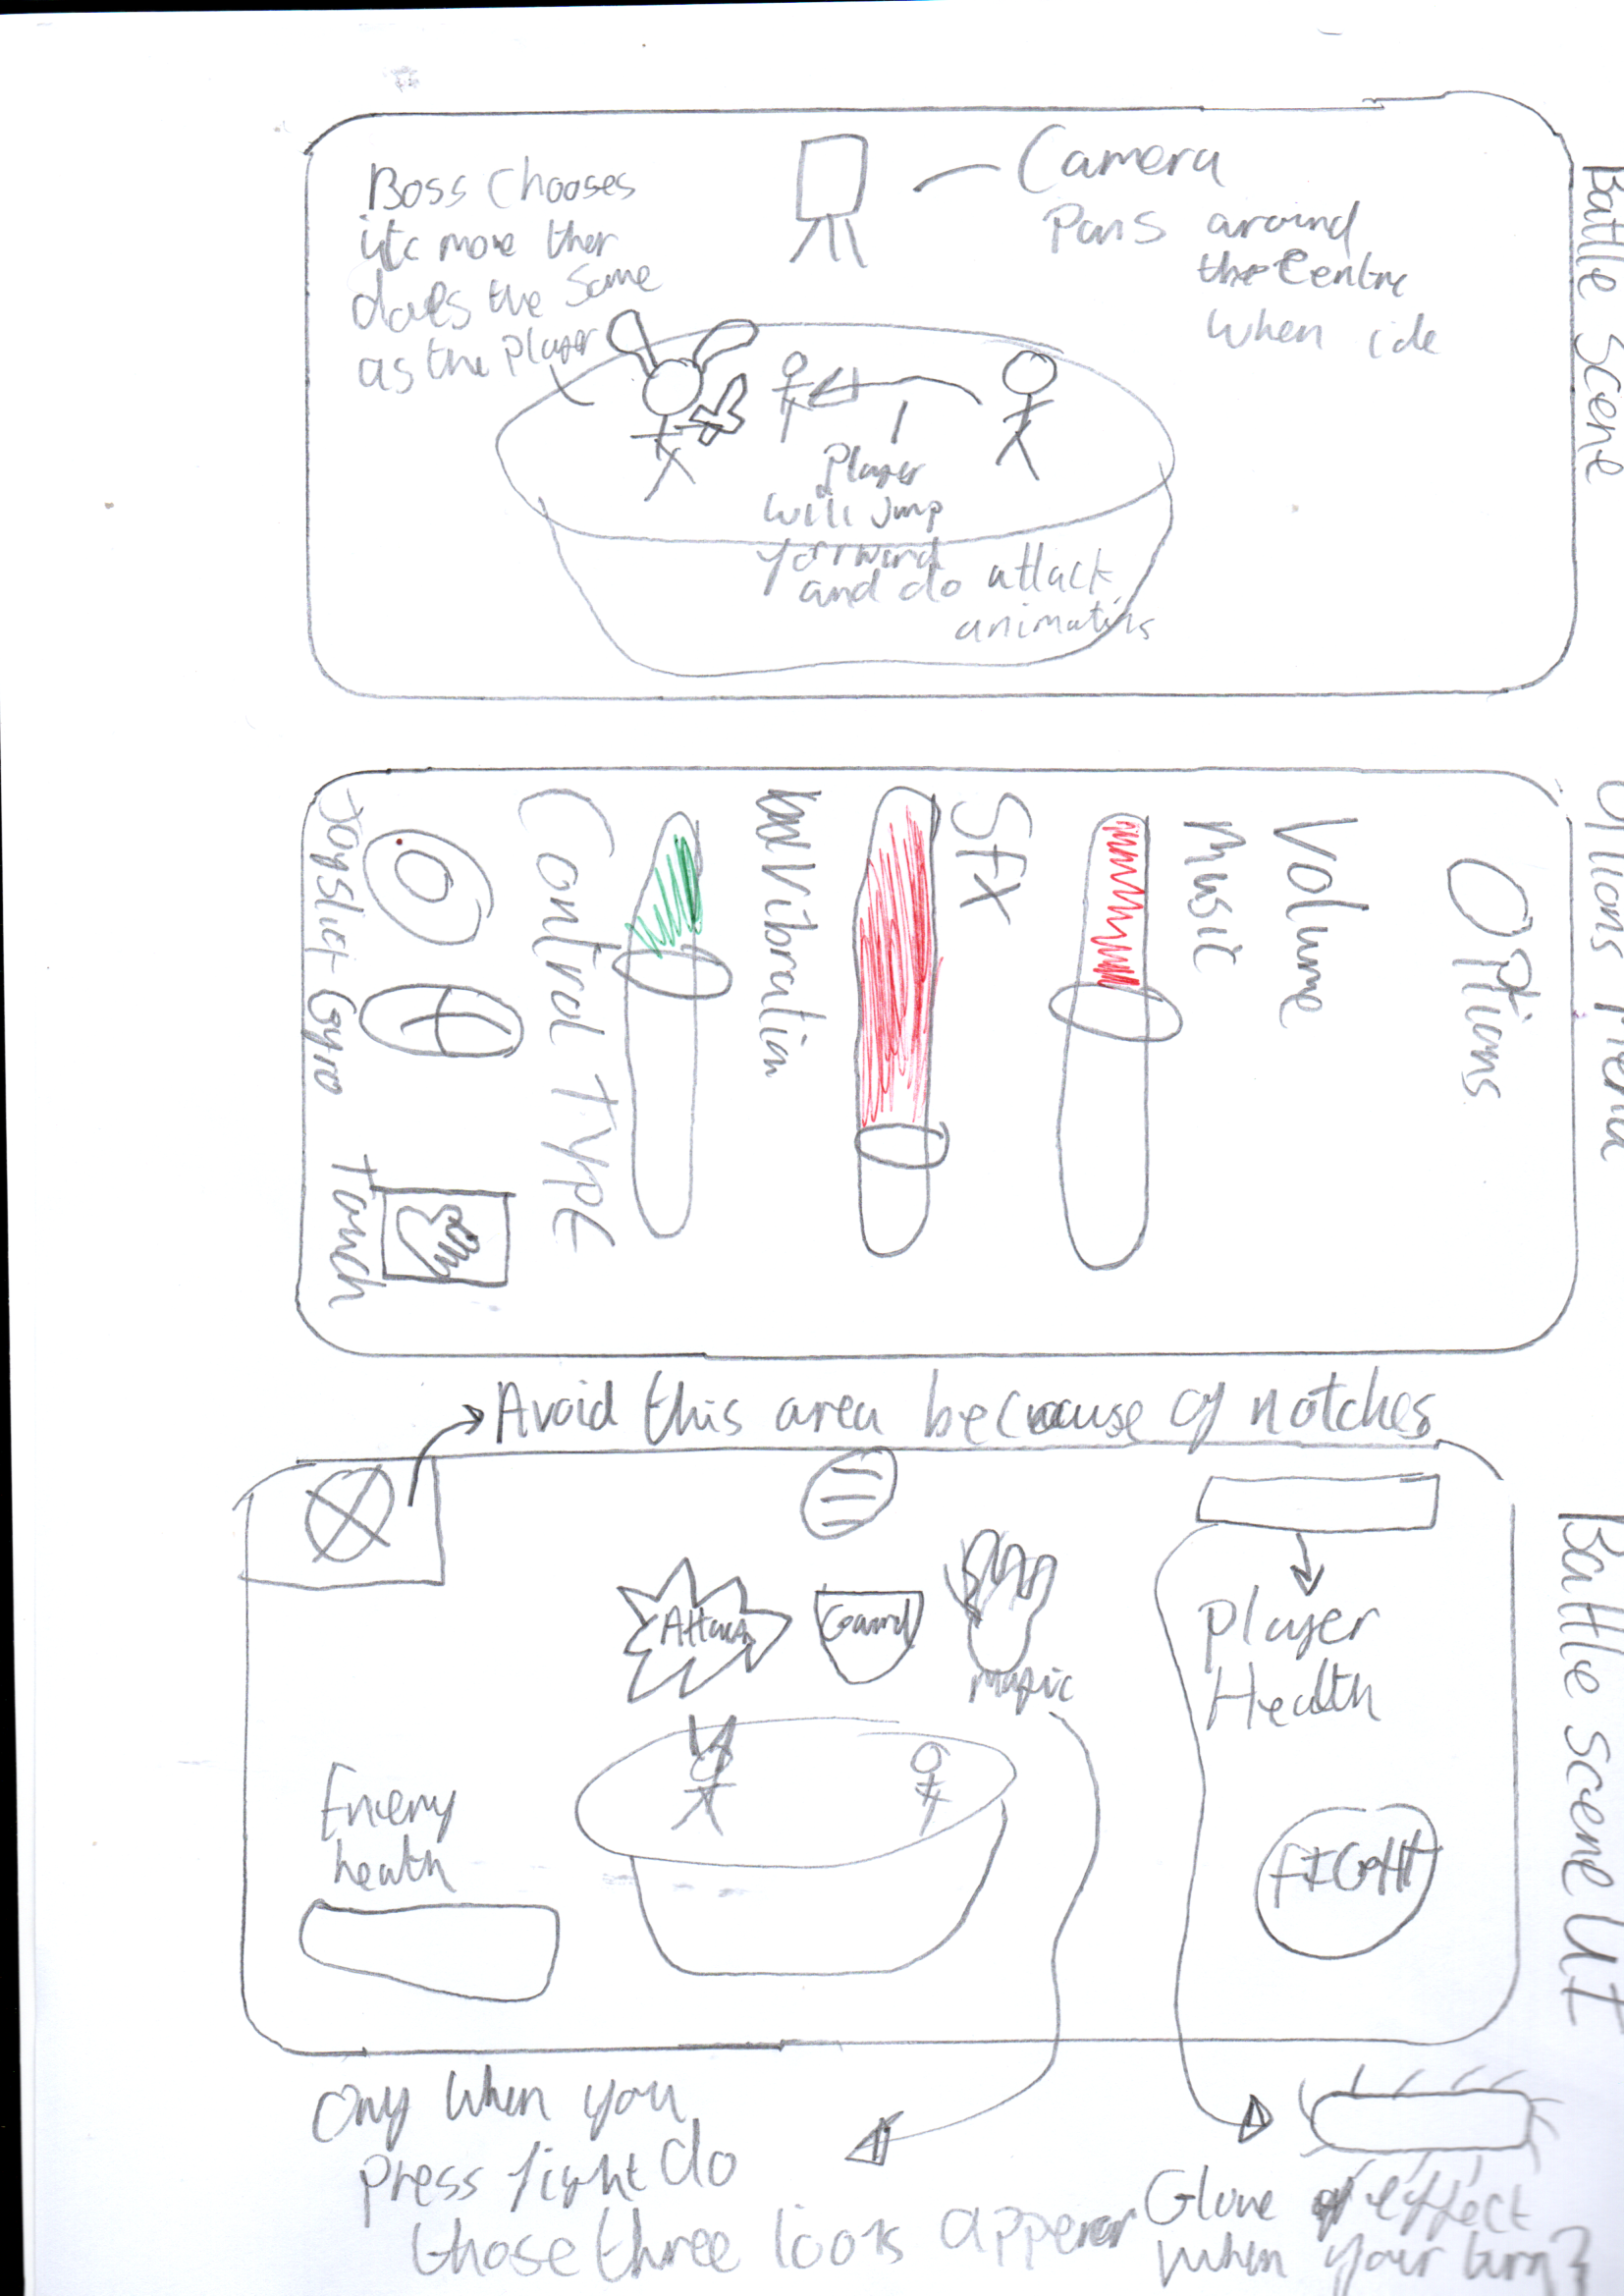 Battle Scene
Boss Chooses
its move then
does the same
as the player
Camera
Pans around
the Centre
when idle
Player
will jump
forward
and do attack
animations
Options Menu
Options
Volume
Music
SFX
Vibration
Control TYPE
Joystick
Gyro
Touch
Avoid this area because of notches
Battle scene UI
Attack
Guard
Magic
Player
Health
Enemy
health
FIGHT
Ony when you
press fight do
those three icons appear
Glow effect
when your turn?